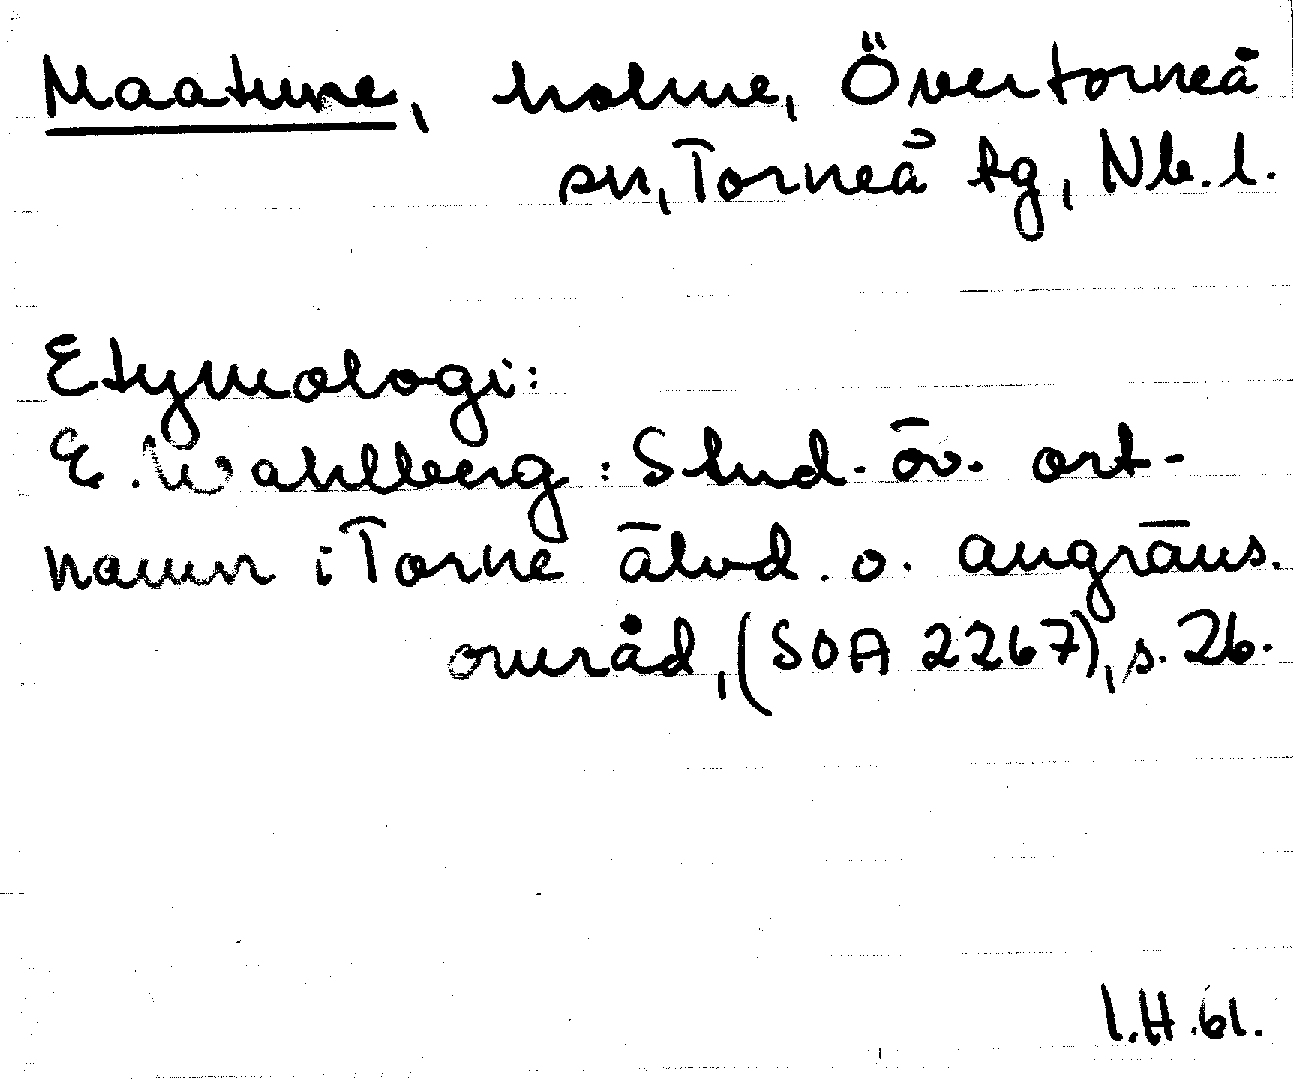 Maatune, holme, Övertorneå
sn, Torneå tg, Nb. l.
Etymologi:
E. Wahlberg: Stud. öv. ort-
namn i Torne älvd. o. angräns.
områd, (SOA 2267), s. 26.
I.H. 61.